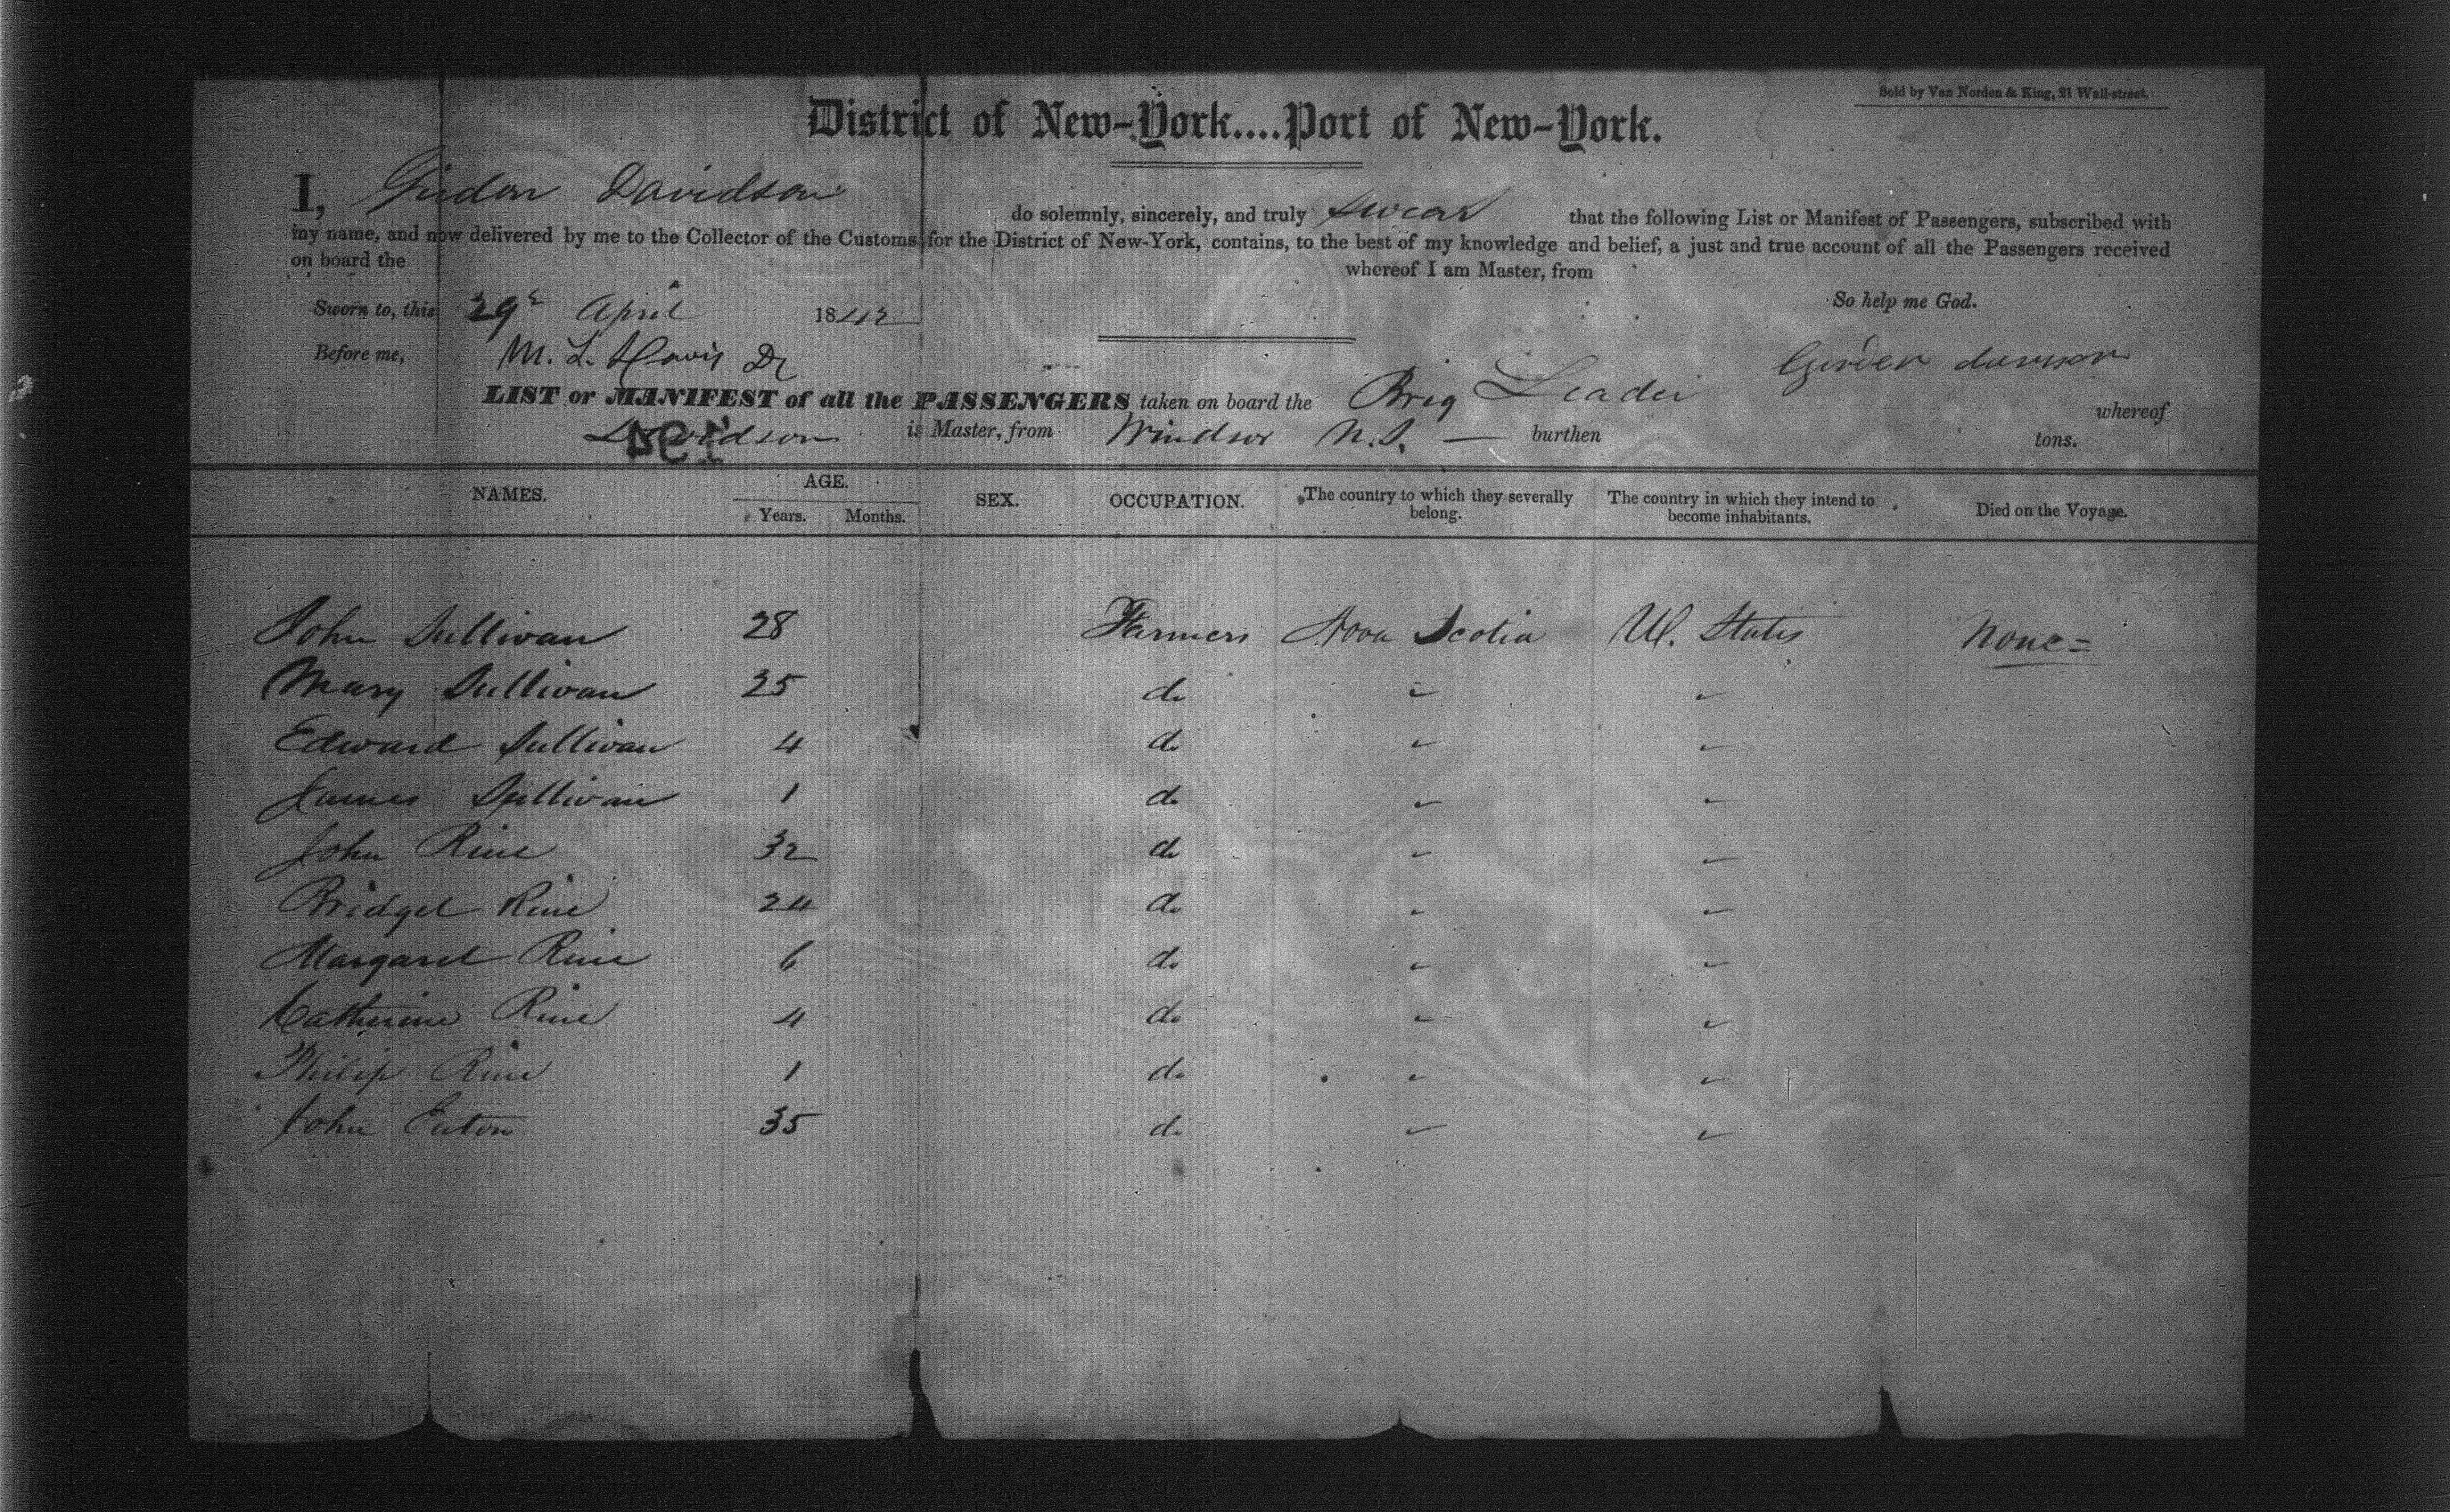 Sold by Van Norden & King, 21 Wall-street.
District of New-York....Port of New-York.
I, Davidson do solemnly, sincerely, and truly swear that the following List or Manifest of Passengers, subscribed with
my name, and now delivered by me to the Collector of the Customs for the District of New-York, contains, to the best of my knowledge and belief, a just and true account of all the Passengers received
on board the whereof I am Master, from
So help me God.
Sworn to, this 29 April 1842
Before me, M. L. Davis
LIST or MANIFEST of all the PASSENGERS taken on board the Brig Leader whereof
Davidson is Master, from Windsor N.S. — burthen tons.
194
NAMES. AGE. Years. Months. SEX. OCCUPATION. The country to which they severally belong. The country in which they intend to become inhabitants. Died on the Voyage.
John Sullivan 28 Farmers Nova Scotia U. States None=
Mary Sullivan 25 do " "
Edward Sullivan 4 do " "
James Sullivan 1 do " "
John Rine 32 do " "
Bridget Rine 24 do " "
Margaret Rine 6 do " "
Catherine Rine 4 do " "
Philip Rine 1 do " "
John Eaton 35 do " "